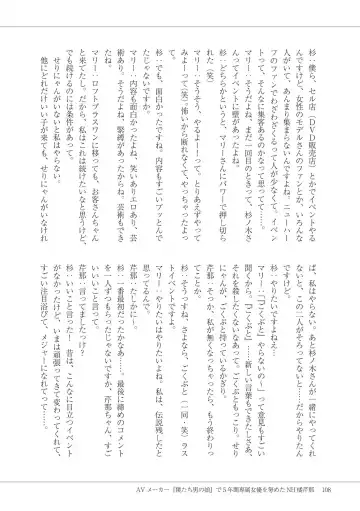 杉：僕ら、セル店（ＤＶＤ販売店）とかでイベントやる
んですけど、女性のモデルさんのファンとか、いろんな
人がいて、あんまり集まらないんですよね。ニューハー
フのファンでわざわざくるって人が少なくて、イベン
トって、そんなに集客あるのかなって思ってて……。
マリー：そうだよね、まだ一回目のときって、杉ノ木さ
んってイベントに壁があったよね。
杉：どっちかというと、マリーさんにパワーで押し切ら
れた（笑）
マリー：そうそう、やるよーーって。とりあえずやって
みよーって（笑）。怖いから断れなくて、やっちゃったよっ
て（笑）
杉：でも、面白かったですね。内容もすごいプッとんで
いたですからね。
マリー：内容も面白かったよね。笑いありエロあり、芸
術あり。そうだよね、緊縛があったからね。芸術もでき
たね。
マリー：ロフトプラスワンに移っても、お客さんちゃん
と来てたし。だから、私はこれは続けたいなと思うけど、
でも続けるのには条件があって。
せりにゃんがいないと私はやらない。
他にどれだけいい子が来ても、せりにゃんがいなけれ
ば、私はやらない。あと杉ノ木さんが一緒にやってくれ
ないと、この二人がそろってないと……だからやりたん
ですけど。
杉：やりたいですよねえ…
マリー：「『ごくぶと』やらないの～」って意見もすごい
聞くから。「『ごくぶと』……新しい言葉もできたしさ、
それを殺したくないなあって。ごくぶともっこり、せり
にゃんがごくぶとを持っているかぎり。
芹那：えっか、私が無くなっちゃったら、もう終わりっ
てことか。
杉：そうっすね、さよなら、ごくぶと（一同・笑）ラス
トイベントですよ。
マリー：やりたいはやりたいよね。私は、伝説残したと
思ってるんで。
芹那：たしかにー。
杉：一番最初だったかなあ……、最後に締めのコメント
を一人ずつもらったじゃないですか、芹那ちゃん、すご
いいいこと言って。
芹那：言ってましたっけ？
杉：いいこと言った！　昔は、こんなに目立つイベント
がなかったけど、いまは頑張ってきて変わってくれて、
すごい注目浴びて、メジャーになれてって……。
AV メーカー『僕たち男の娘』で 5 年間専属女優を努めた NH 橘芹那　108